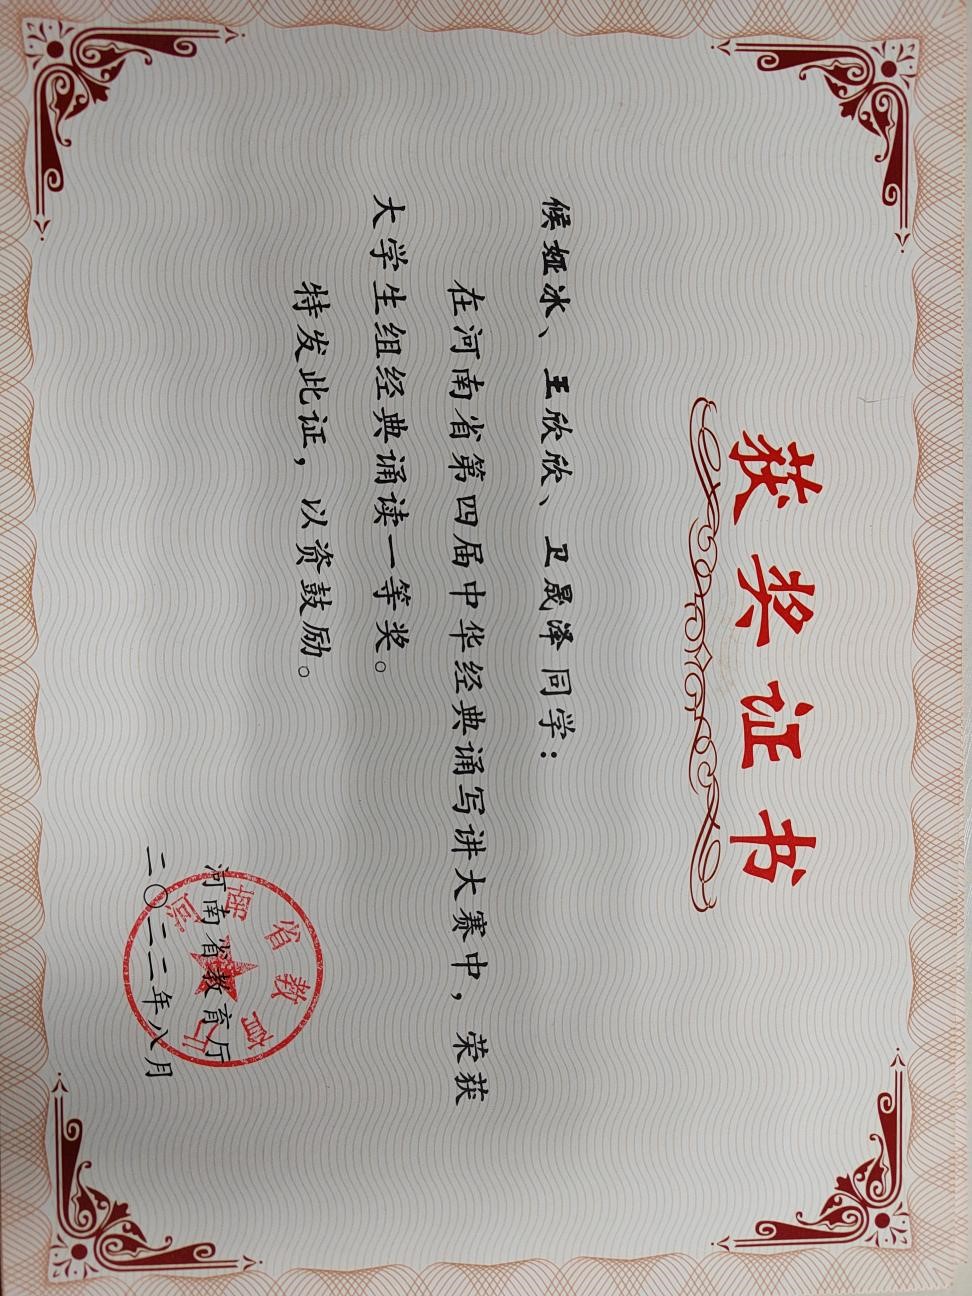 获奖证书
候娅冰、王欣欣、卫晟泽同学：
在河南省第四届中华经典诵写讲大赛中，荣获
大学生组经典诵读一等奖。
特发此证，以资鼓励。
河南省教育厅
二〇二二年八月
河南省教育厅